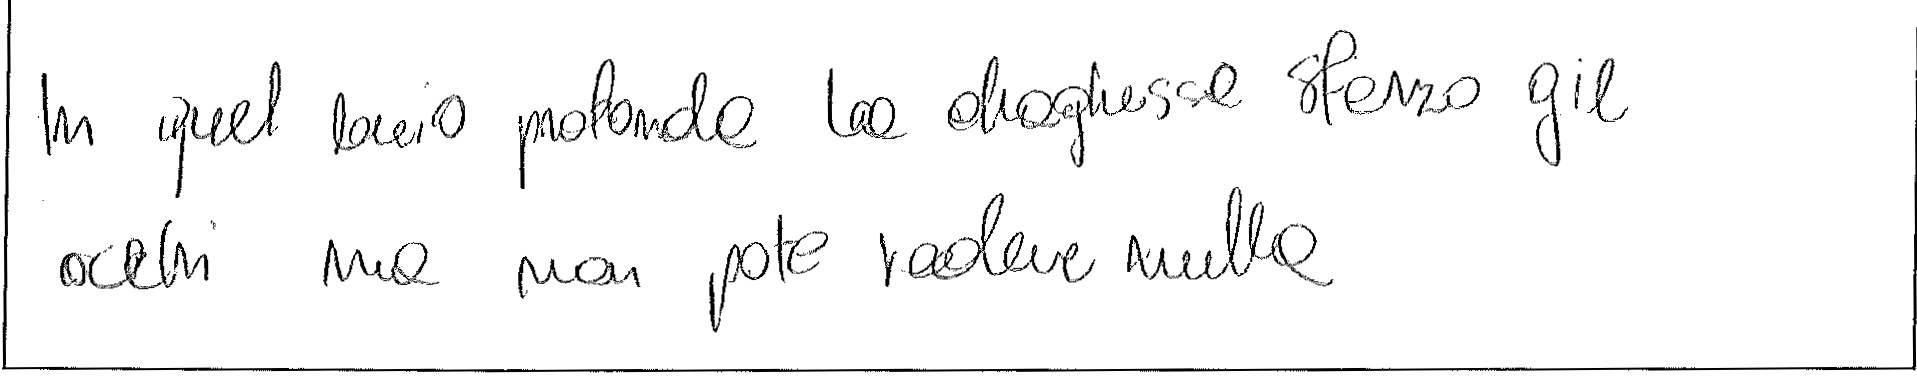 In quel buio profonda la draghessa sferzo gil
occhi ma non pote vedere nulla